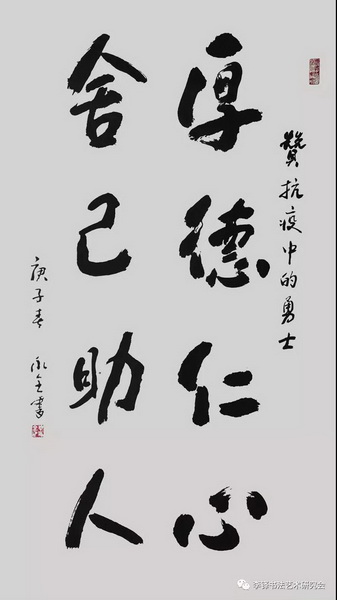 贊抗疫中的勇士
厚德仁心
舍己助人
庚子春 永全書
李铎书法艺术研究会